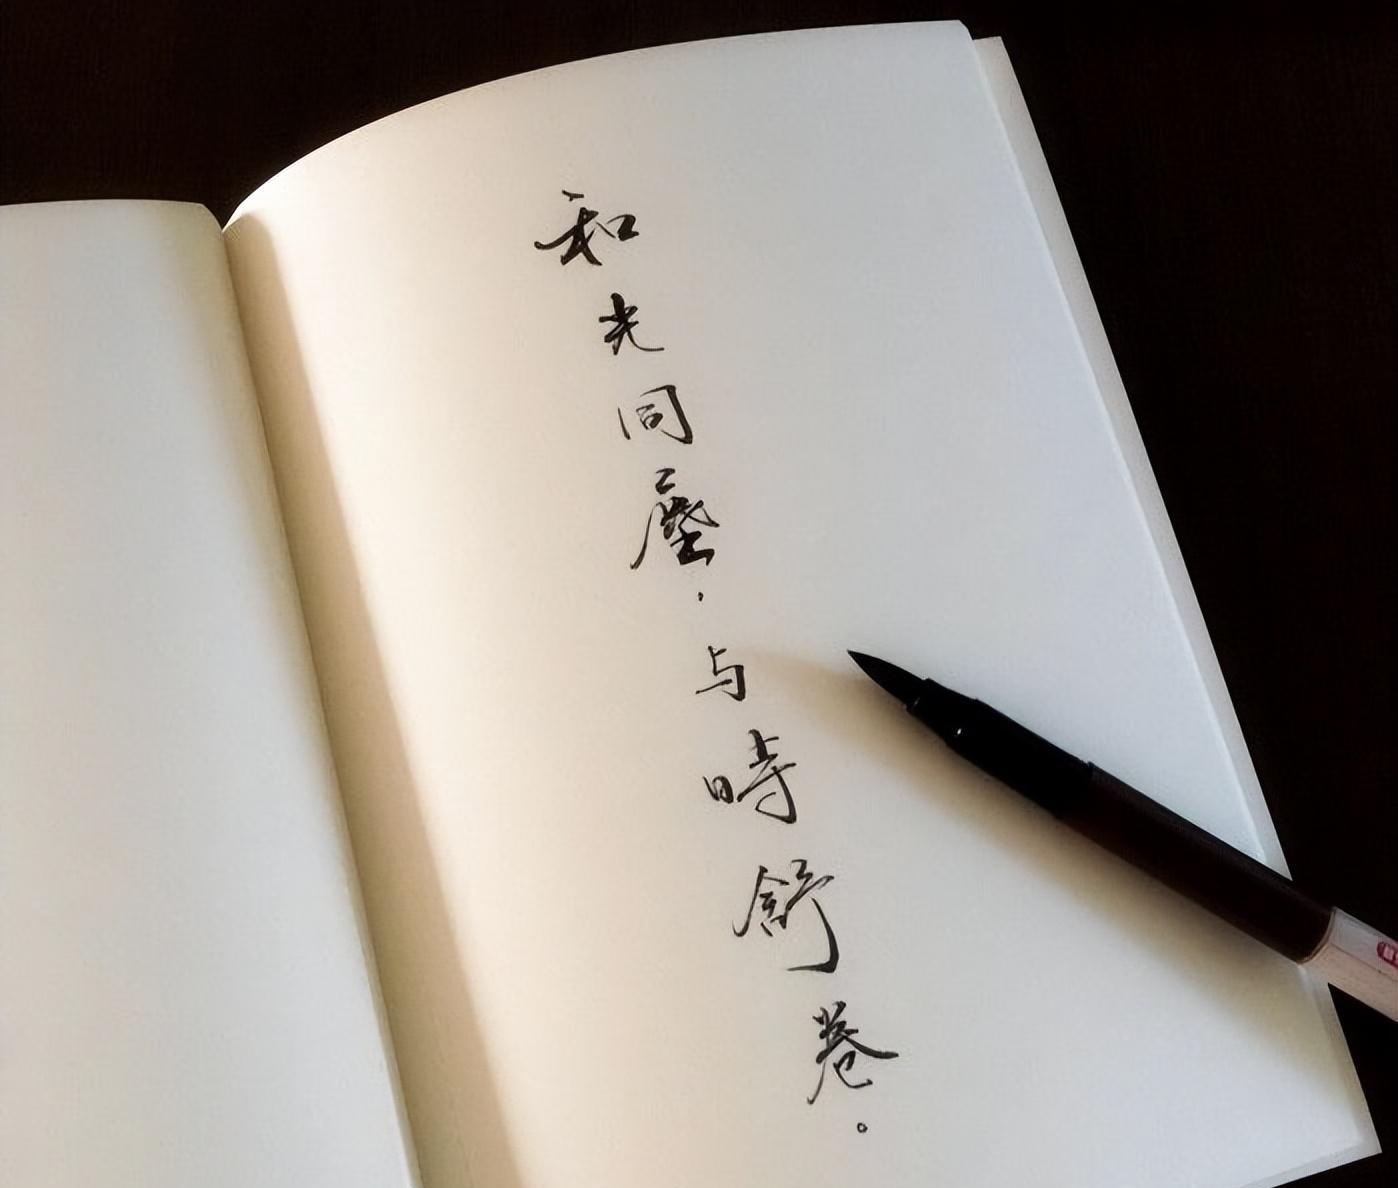 和光同塵，与時舒卷。